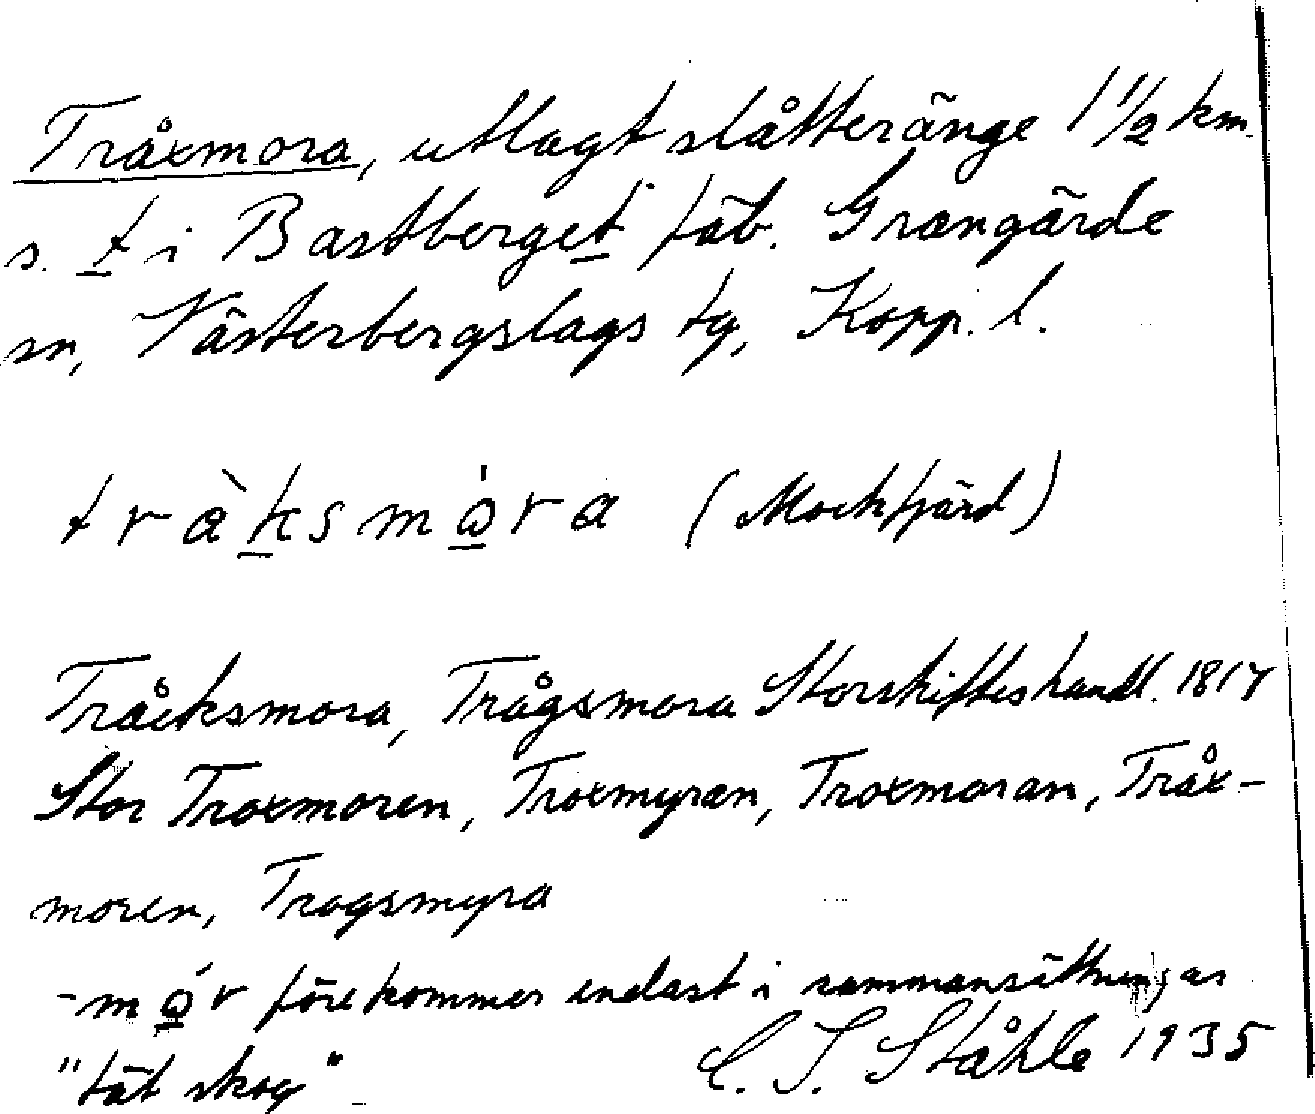 Tråxmora, utlagt slåtteränge 1 1/2 km.
s. t i Bastberget fäb. Grangärde
sn, Västerbergslags tg, Kopp. l.
tràksmǫ́ra (Mockfjärd)
Tråcksmora, Trågsmora Storskifteshandl. 1817
Stor Troxmoren, Troxmyran, Troxmoran, Tråx-
moren, Trogsmyra
-mǫ́r förekommer endast i sammansättningar
"tät skog"
C. I. Ståhle 1935